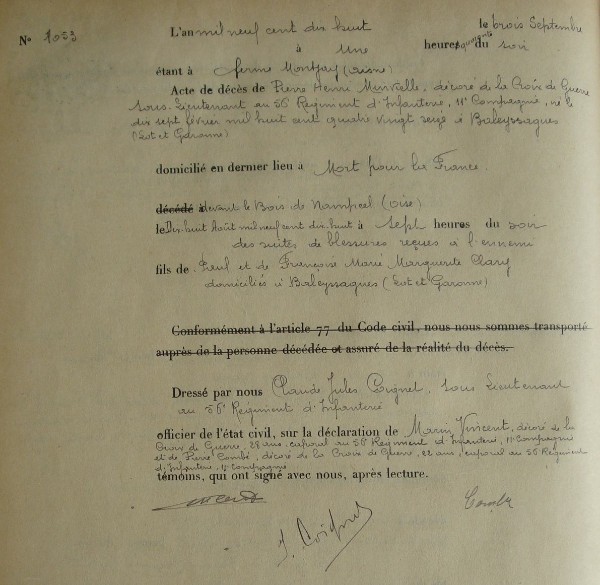 N° 1053
L'an mil neuf cent dix huit le trois Septembre
à une heures quarante du soir
étant à ferme Montjay (Aisne)
Acte de décès de Pierre Henri Minvielle, décoré de la Croix de Guerre
Sous-Lieutenant au 56 Régiment d'Infanterie, 11e Compagnie, né le
dix sept février mil huit cent quatre vingt seize à Baleyssagues
(Lot et Garonne)
domicilié en dernier lieu à Mort pour la France.
décédé à devant le Bois de Nampcel (Oise)
le Dix-huit Août mil neuf cent dix-huit à Sept heures du soir
des suites de blessures reçues à l'ennemi
fils de Paul et de Françoise Marie Marguerite Clary
domiciliés à Baleyssagues (Lot et Garonne)
Conformément à l'article 77 du Code civil, nous nous sommes transporté
auprès de la personne décédée et assuré de la réalité du décès.
Dressé par nous Claude Jules Coignet, Sous Lieutenant
au 56e Régiment d'Infanterie
officier de l'état civil, sur la déclaration de Marin Vincent, décoré de la
Croix de Guerre, 29 ans, caporal au 56 Régiment d'Infanterie, 11e Compagnie
et de Pierre Combé, décoré de la Croix de Guerre, 22 ans, caporal au 56 Régiment
d'Infanterie, 11e Compagnie
témoins, qui ont signé avec nous, après lecture.
J. Coignet